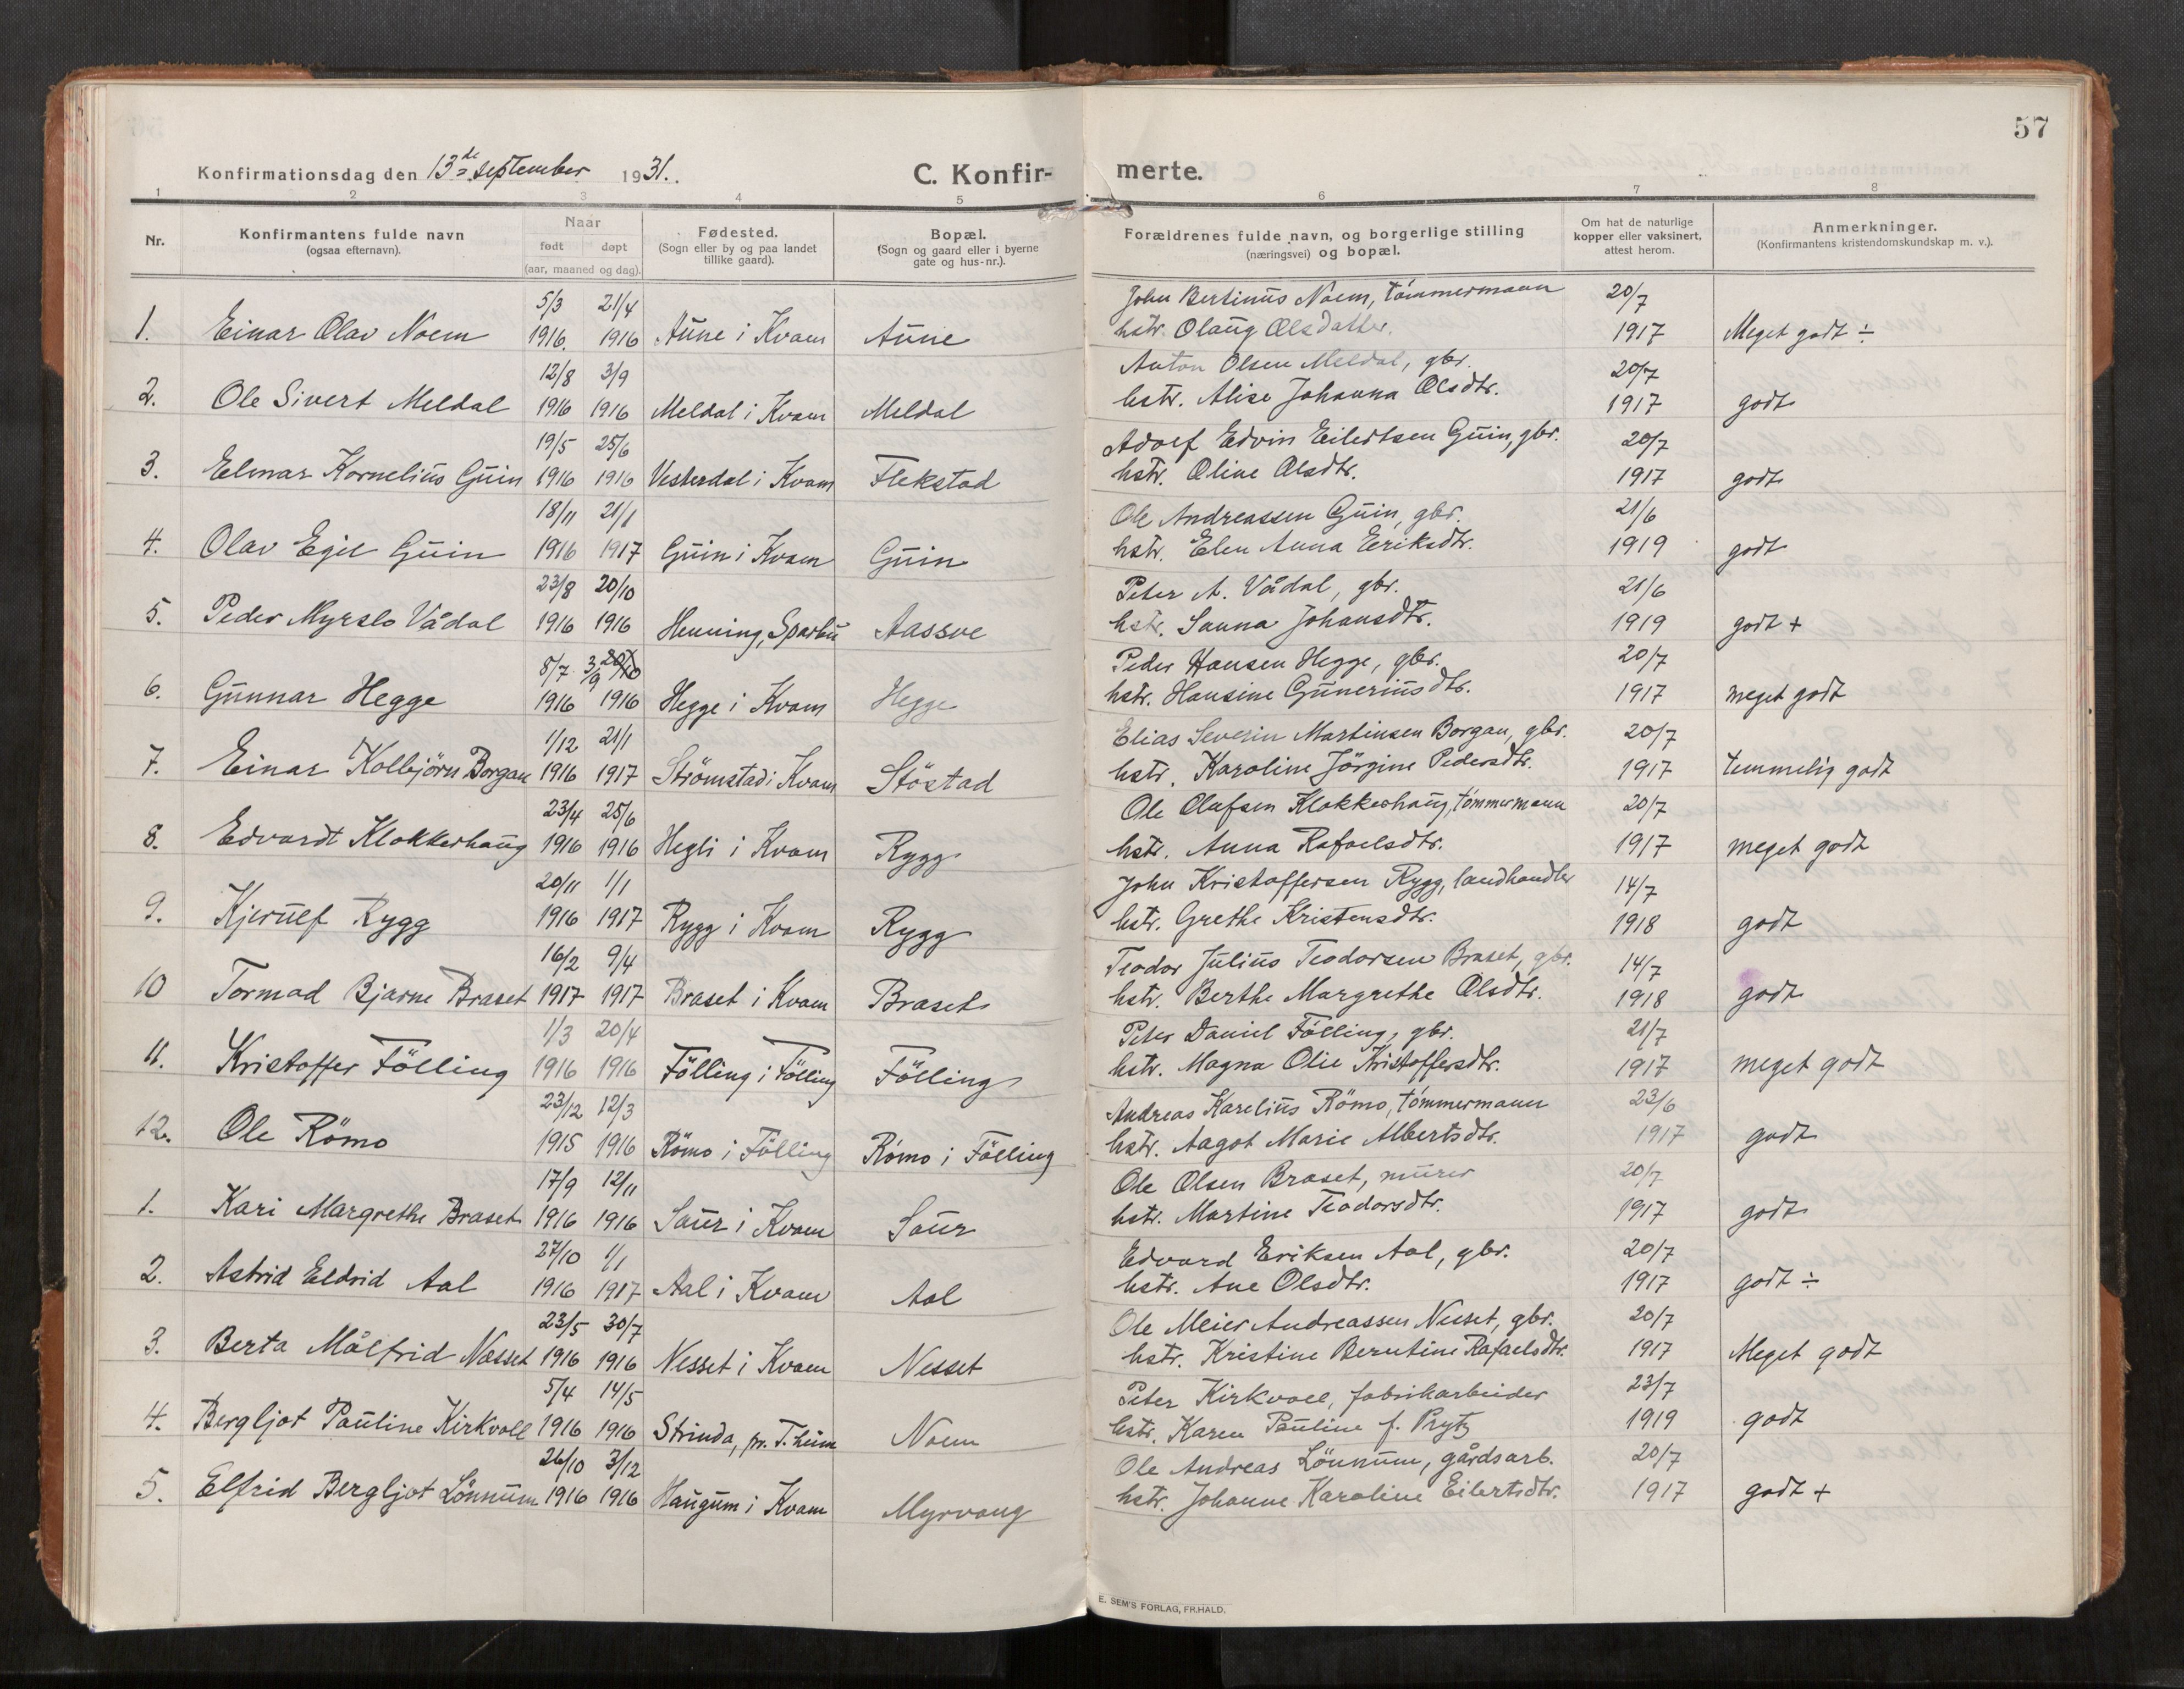 57
Konfirmationsdag den 13de september 1931.
C. Konfirmerte.
1 2 3 4 5 6 7 8
Nr.
Konfirmantens fulde navn
(ogsaa efternavn).
Naar
født døpt
(aar, maaned og dag).
Fødested.
(Sogn eller by og paa landet
tillike gaard).
Bopæl.
(Sogn og gaard eller i byerne
gate og hus-nr.).
Forældrenes fulde navn, og borgerlige stilling
(næringsvei) og bopæl.
Om hat de naturlige
kopper eller vaksinert,
attest herom.
Anmerkninger.
(Konfirmantens kristendomskundskap m. v.).
5/3 21/4 John Bertinus Noem, tømmermann 20/7
1. Einar Olav Noem 1916. 1916 Aune i Kvam Aune hstr. Olaug Olsdatter. 1917 Meget godt ÷
12/8 3/9 Anton Olsen Meldal, gbr. 20/7
2. Ole Sivert Meldal 1916 1916 Meldal i Kvam Meldal hstr. Alise Johanna Olsdtr. 1917 godt
19/5 25/6 Adolf Edvin Eilertsen Guin, gbr. 20/7
3. Elmar Kornelius Guin 1916 1916 Vesterdal i Kvam Flekstad hstr. Oline Olsdtr. 1917 godt
18/11 21/1 Ole Andreassen Guin, gbr. 21/6
4. Olav Egil Guin 1916 1917 Guin i Kvam Guin hstr. Elen Anna Eeriksdtr. 1919 godt
23/8 20/10 Peter A. Vådal, gbr. 21/6
5. Peder Myrslo Vådal 1916 1916 Henning, Sparbu Aassve hstr. Sanna Johansdtr. 1919 godt +
8/7 3/9 20/10 Peder Hansen Hegge, gbr. 20/7
6. Gunnar Hegge 1916 1916 Hegge i Kvam Hegge hstr. Hansine Guneriusdtr. 1917 meget godt
1/12 21/1 Elias Severin Martinsen Borgan, gbr. 20/7
7. Einar Kolbjörn Borgan 1916 1917 Strömstad i Kvam Stöstad hstr. Karoline Jörgine Pedersdtr. 1917 temmelig godt
23/4 25/6 Ole Olufsen Klokkerhaug, tømmermann 20/7
8. Edvardt Klokkerhaug 1916 1916 Hegli i Kvam Rygg hstr. Anna Rafaelsdtr. 1917 meget godt
20/11 1/1 John Kristoffersen Rygg, landhandler 14/7
9. Kjerulf Rygg 1916 1917 Rygg i Kvam Rygg hstr. Grethe Kristensdtr. 1918 godt
16/2 9/4 Teodor Julius Teodorsen Braset, gbr. 14/7
10 Tormad Bjarne Braset 1917 1917 Braset i Kvam Braset hstr. Berthe Margrethe Olsdtr. 1918 godt
1/3 20/4 Peter Daniel Fölling, gbr. 21/7
11. Kristoffer Fölling 1916 1916 Fölling i Fölling Fölling hstr. Magna Olie Kristoffersdtr. 1917 meget godt
23/12 12/3 Andreas Karelius Römo, tømmermann 23/6
12. Ole Römo 1915 1916 Römo i Fölling Römo i Fölling hstr. Aagot Marie Albertsdtr. 1917 godt
17/9 12/11 Ole Olsen Braset, murer 20/7
1. Kari Margrethe Braset 1916 1916 Saur i Kvam Saur hstr. Martine Teodorsdtr. 1917 godt
27/10 1/1 Edvard Eriksen Aal, gbr. 20/7
2. Astrid Eldrid Aal 1916 1917 Aal i Kvam Aal hstr. Ane Olsdtr. 1917 godt ÷
23/5 30/7 Ole Meier Andreassen Nesset, gbr. 20/7
3. Berta Målfrid Nesset 1916 1916 Nesset i Kvam Nesset hstr. Kristine Berntine Rafaelsdtr. 1917 Meget godt
5/4 14/5 Peter Kirkvoll, fabrikarbeider 23/7
4. Bergljot Pauline Kirkvoll 1916 1916 Strinda, pr. T.heim Noem hstr. Karen Pauline f. Prytz 1919 godt
26/10 3/12 Ole Andreas Lönnum, gårdsarb. 20/7
5. Elfrid Bergljot Lönnum 1916 1916 Haugum i Kvam Myrvang hstr. Johanne Karoline Eilertsdtr. 1917 godt +
E. SEM'S FORLAG, FR.HALD.